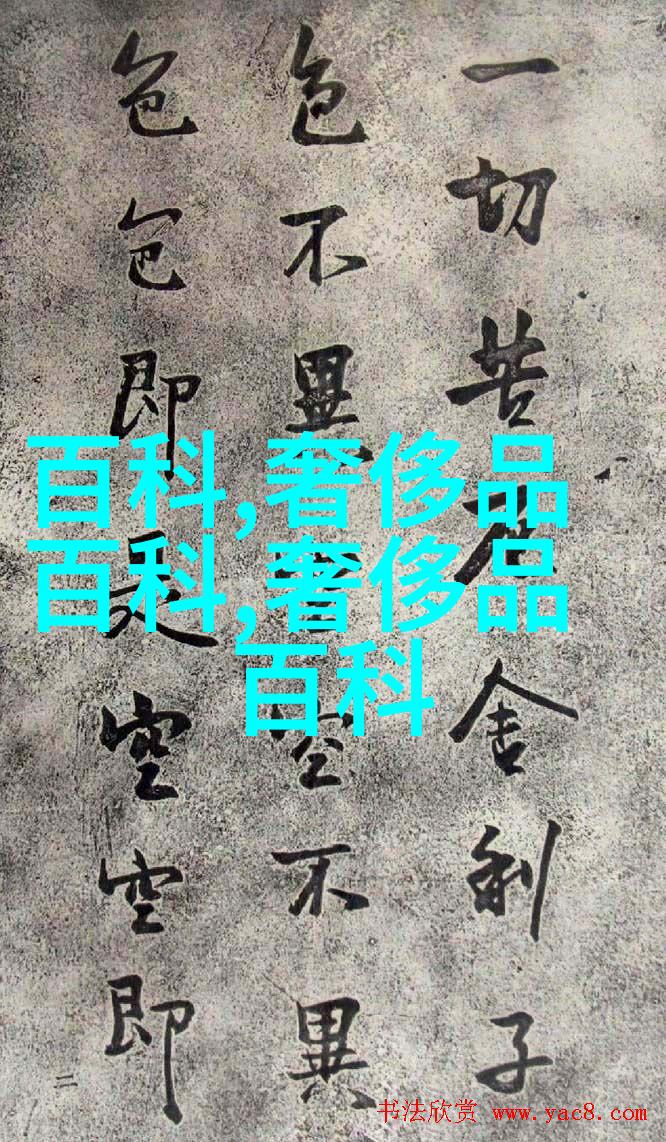 一切苦厄舍利子
色不異空不異
色色即是空空即
二
百科,奢侈品
百科,奢侈品
百科
书法欣赏 www.yac8.com